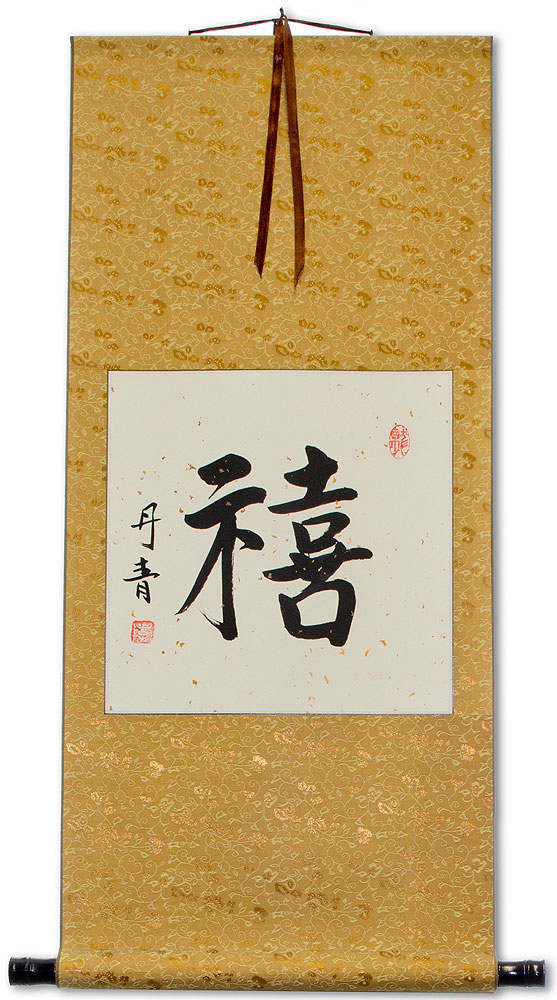 禧
丹青